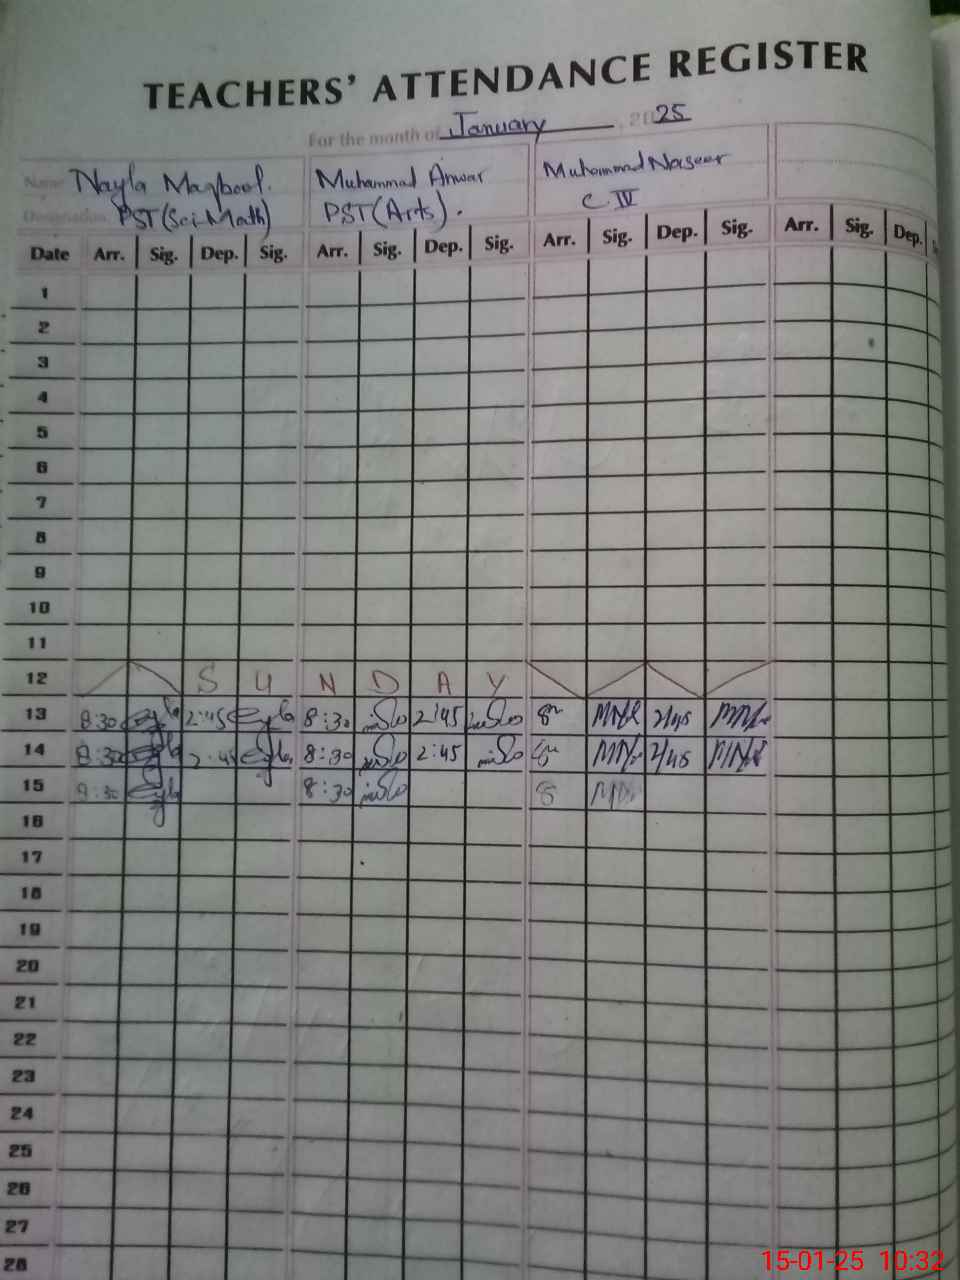 TEACHERS' ATTENDANCE REGISTER
For the month of January 2025
Name Nayla Maqbool. Muhammad Anwar Muhammad Naseer
Designation PST (Sci. Math) PST (Arts). C IV
Date Arr. Sig. Dep. Sig. Arr. Sig. Dep. Sig. Arr. Sig. Dep. Sig. Arr. Sig. Dep.
1
2
3
4
5
6
7
8
9
10
11
12 S U N D A Y
13 8:30 2:45 8:30 2:45 8 2/45
14 8:30 2:45 8:30 2:45 8 2/45
15 8:30 8:30 8
16
17
18
19
20
21
22
23
24
25
26
27
28
15-01-25 10:32